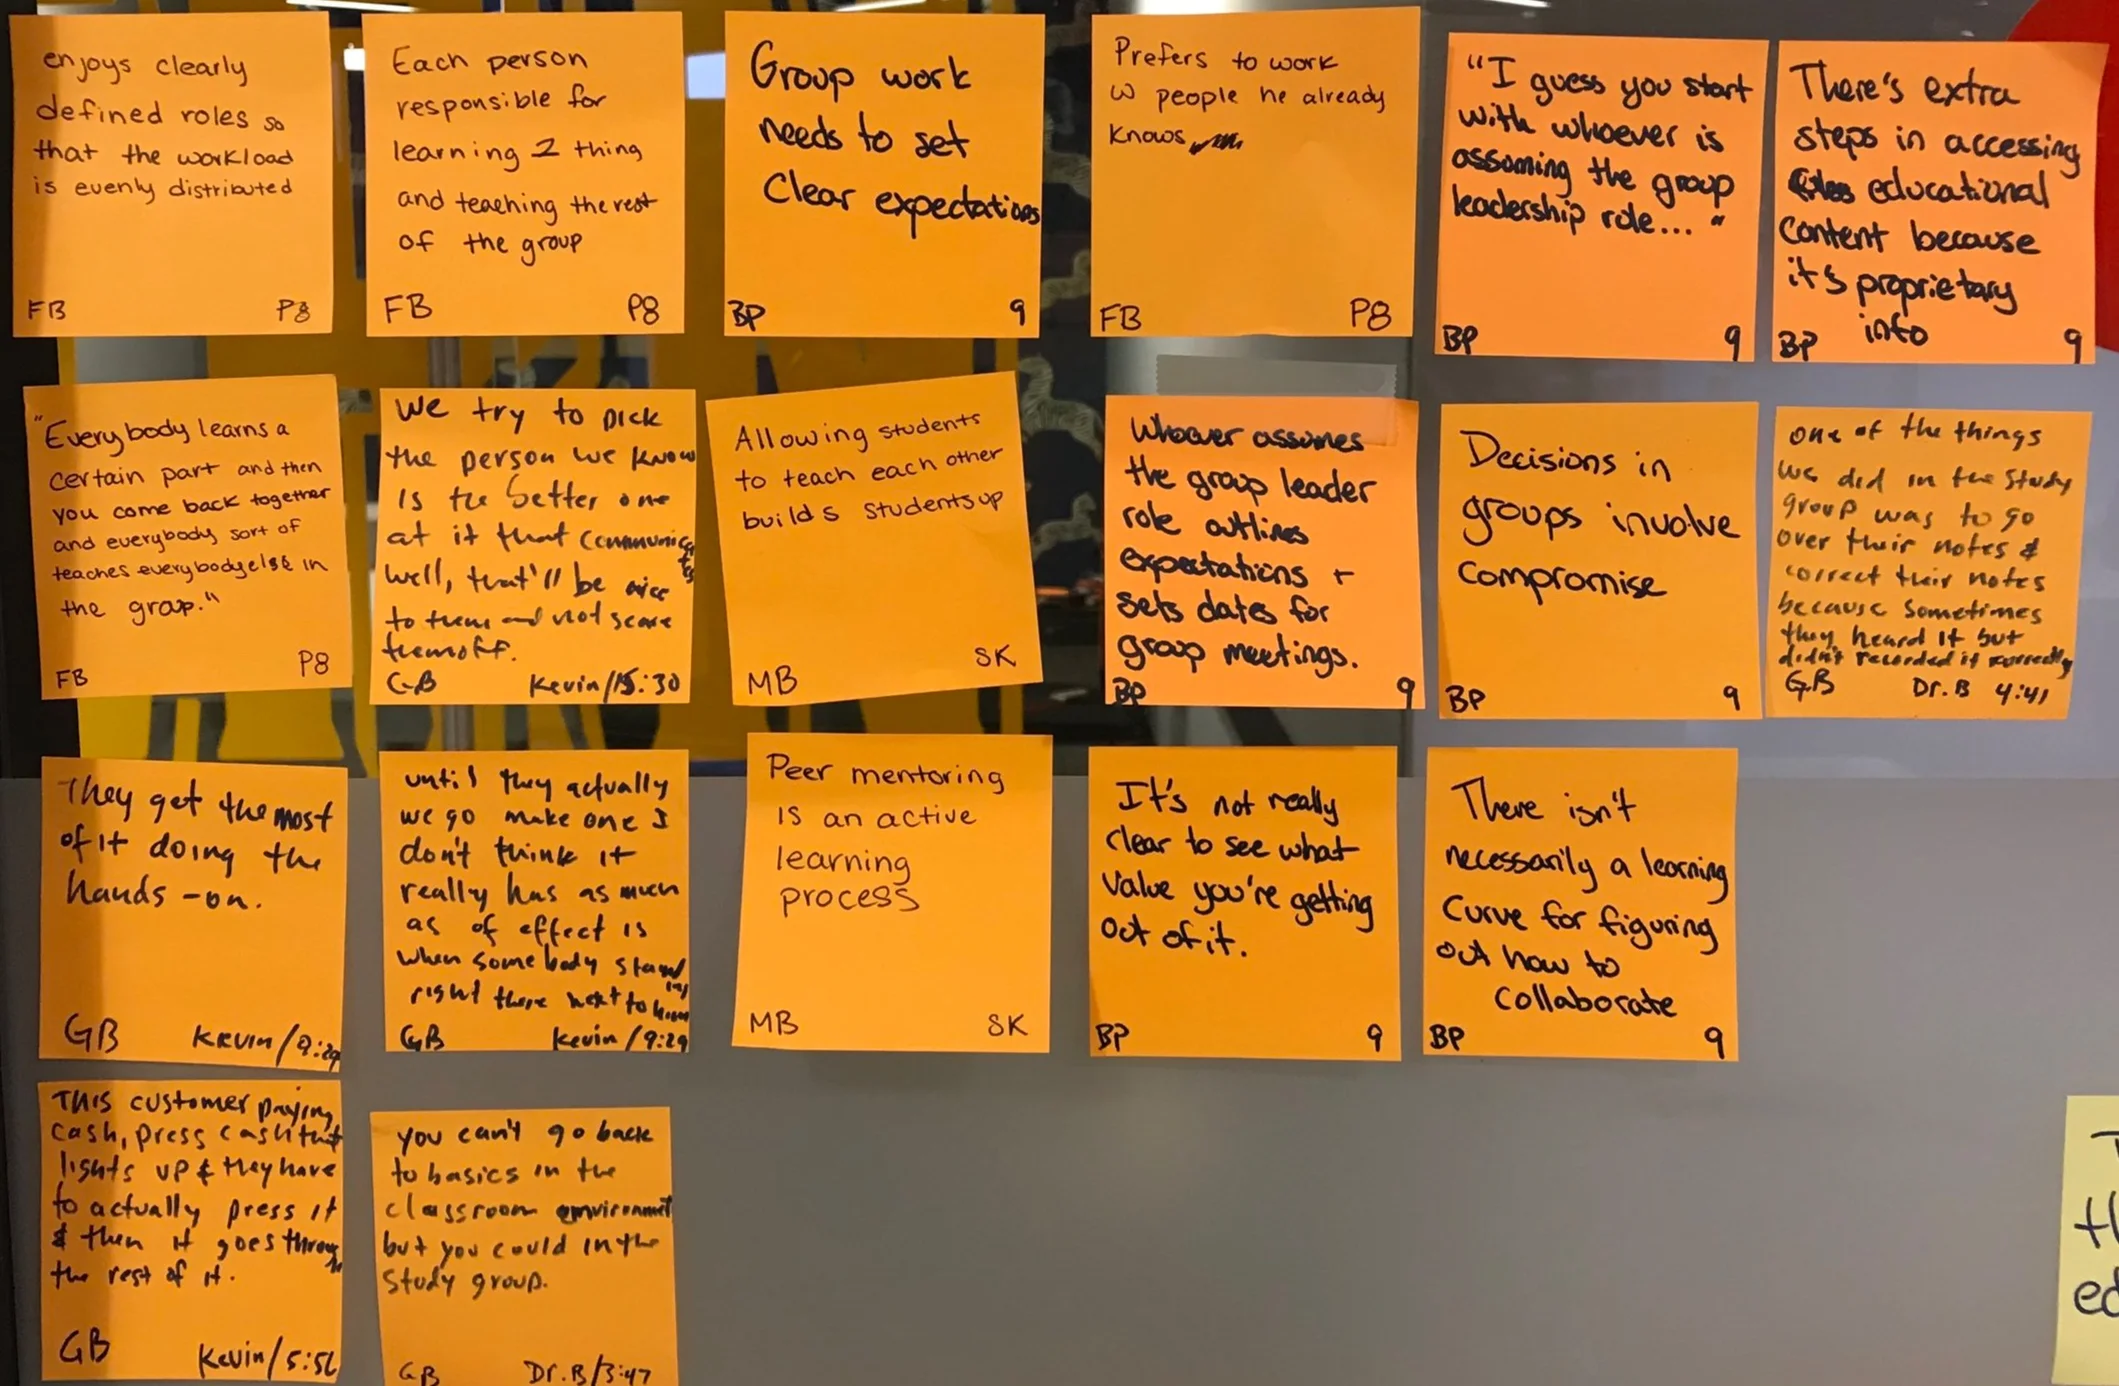 enjoys clearly
defined roles so
that the workload
is evenly distributed
FB P8
Each person
responsible for
learning 1 thing
and teaching the rest
of the group
FB P8
Group work
needs to set
Clear expectations
BP 9
Prefers to work
w people he already
knows
FB P8
"I guess you start
with whoever is
assuming the group
leadership role... "
BP 9
There's extra
steps in accessing
educational
content because
it's proprietary
info
BP 9
"Everybody learns a
certain part and then
you come back together
and everybody sort of
teaches everybody else in
the group."
FB P8
We try to pick
the person we know
is the better one
at it that communicates
well, that'll be nice
to them and not scare
them off.
GB Kevin/15:30
Allowing students
to teach each other
builds students up
MB SK
Whoever assumes
the group leader
role outlines
expectations +
sets dates for
group meetings.
BP 9
Decisions in
groups involve
compromise
BP 9
one of the things
we did in the study
group was to go
over their notes &
correct their notes
because sometimes
they heard it but
didn't recorded it correctly
GB Dr. B 4:41
They get the most
of it doing the
hands-on.
GB Kevin/9:29
until they actually
we go make one I
don't think it
really has as much
as of effect is
when somebody standing
right there next to him
GB Kevin/9:29
Peer mentoring
is an active
learning
process
MB SK
It's not really
clear to see what
value you're getting
out of it.
BP 9
There isn't
necessarily a learning
curve for figuring
out how to
collaborate
BP 9
This customer paying
cash, press cash that
lights up & they have
to actually press it
& then it goes through
the rest of it.
GB Kevin/5:56
you can't go back
to basics in the
classroom environment
but you could in the
study group.
GB Dr. B/3:47